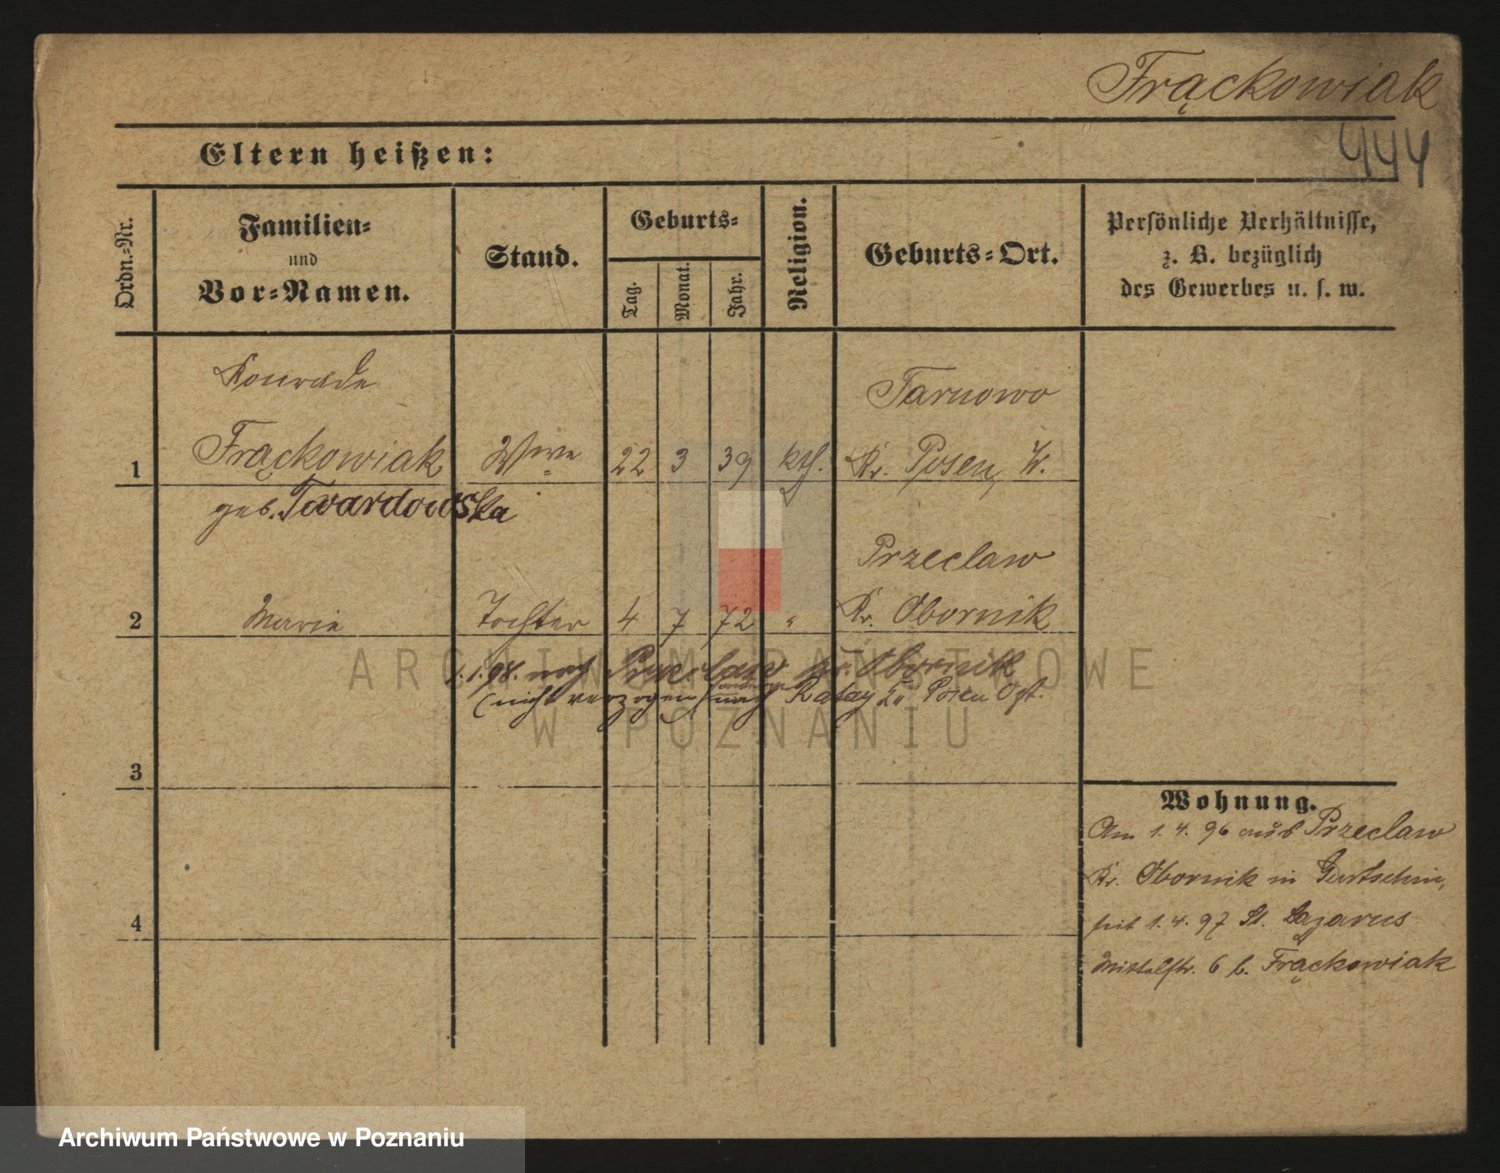 Frąckowiak
944
Eltern heißen:
Ordn.-Nr.
Familien-
und
Vor-Namen.
Stand.
Geburts-
Tag.
Monat.
Jahr.
Religion.
Geburts-Ort.
Persönliche Verhältnisse,
z. B. bezüglich
des Gewerbes u. s. w.
Konrade
Tarnowo
1 Frąckowiak Wwe 22 3 39 kth. Kr. Posen, W.
geb. Twardowska
Przeclaw
2 Marie Tochter 4 7 72 " Kr. Obornik
1.1.98. nach Przeclaw Kr. Obornik
(nicht verzogen) nach Ratay Posen Ost.
3
Wohnung.
Am 1.4.96 aus Przeclaw
Kr. Obornik in Gurtschin,
seit 1.4.97 St. Lazarus
4
Mittelstr. 6 b. Frąckowiak
ARCHIWUM PAŃSTWOWE
W POZNANIU
Archiwum Państwowe w Poznaniu